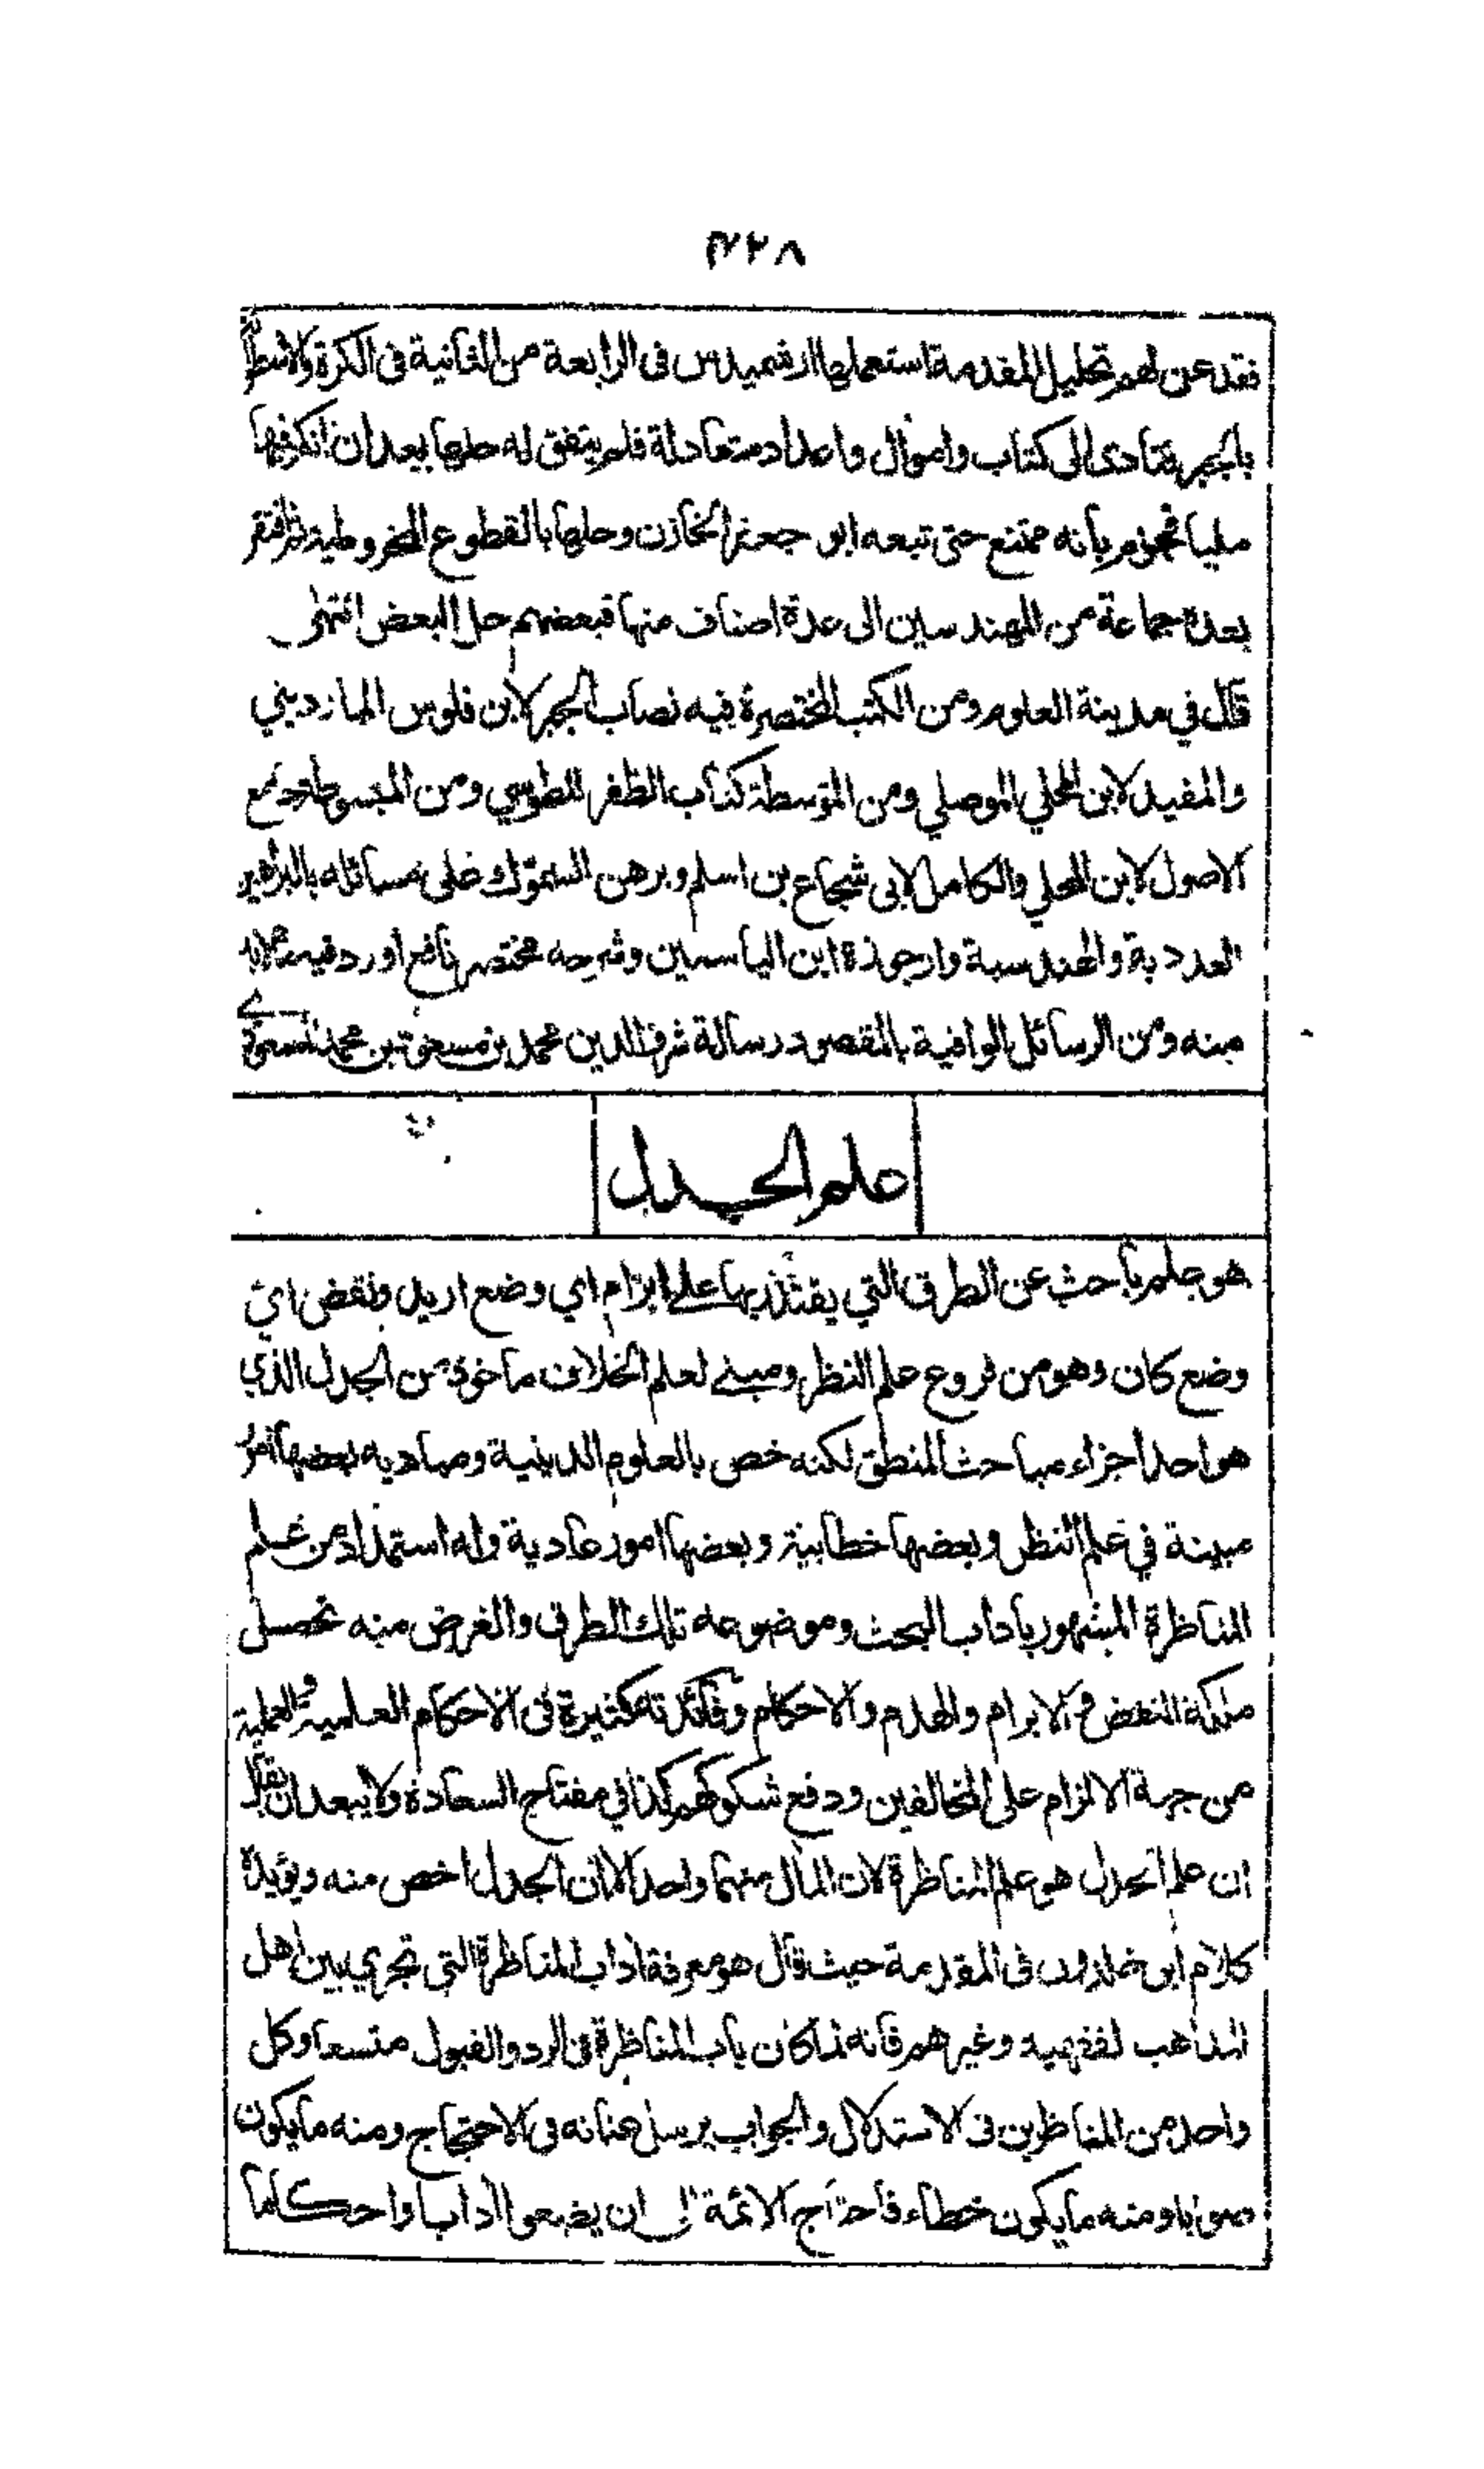 ٣٣٨
فقد عن لهم تحليل المقدمة استعملها ارشميدس فى الرابعة من الثانية فى الكرة والاسطوانة
بالجبر فتادى الى كتاب واموال واعداد متعادلة فلم يتفق له حلها بعد ان افكر فيها
مليا فجزم بأنه ممتنع حتى تبعه ابو جعفر الخازن وحلها بالقطوع المخروطية ثم افتقر
بعده جماعة من المهندسين الى عدة اصناف منها فبعضهم حل البعض انتهى
قال في مدينة العلوم ومن الكتب المختصرة فيه نصاب الجبر لابن فلوس الماردیني
والمفيد لابن المحلي الموصلي ومن المتوسطة كتاب الظفر للطوسي ومن المبسوطة جامع
الاصول لابن المحلي والكامل لابى شجاع بن اسلم وبرهن السموءل على مسائله بالبراهين
العددية والهندسية وارجوزة ابن الياسمين وشرحه مختصر نافع اورد فيه ما لابد
منه ومن الرسائل الوافية بالمقصود رسالة شرف الدين محمد بن مسعود بن محمد المسعودي
علم الجدل
هو علم باحث عن الطرق التي يقتدر بها على ابرام اي وضع اريد ونقض اي
وضع كان وهو من فروع علم النظر ومبنى لعلم الخلاف ماخوذ من الجدل الذي
هو احد اجزاء مباحث المنطق لكنه خص بالعلوم الدينية ومباديه بعضها امور
مبينة في علم النظر وبعضها خطابية وبعضها امور عادية وله استمداد من علم
المناظرة المشهور باداب البحث وموضوعه تلك الطرق والغرض منه تحصيل
ملكة النقض و الابرام والهدم والاحكام وفائدته كثيرة فى الاحكام العلمية والعملية
من جهة الالزام على المخالفين ودفع شكوكهم كذا في مفتاح السعادة ولا يبعد ان يقال
ان علم الجدل هو علم المناظرة لان المآل منهما واحد الا ان الجدل اخص منه ويؤيده
كلام ابن خلدون فى المقدمة حيث قال هو معرفة اداب المناظرة التي تجري بين اهل
المذاهب لفقهية وغيرهم فانه لما كان باب المناظرة فى الرد والقبول متسعا وكل
واحد من المناظرين فى الاستدلال والجواب يرسل عنانه فى الاحتجاج ومنه ما يكون
صوابا ومنه ما يكون خطاء فاحتاج الائمة الى ان يضعوا اداباً واحكاما